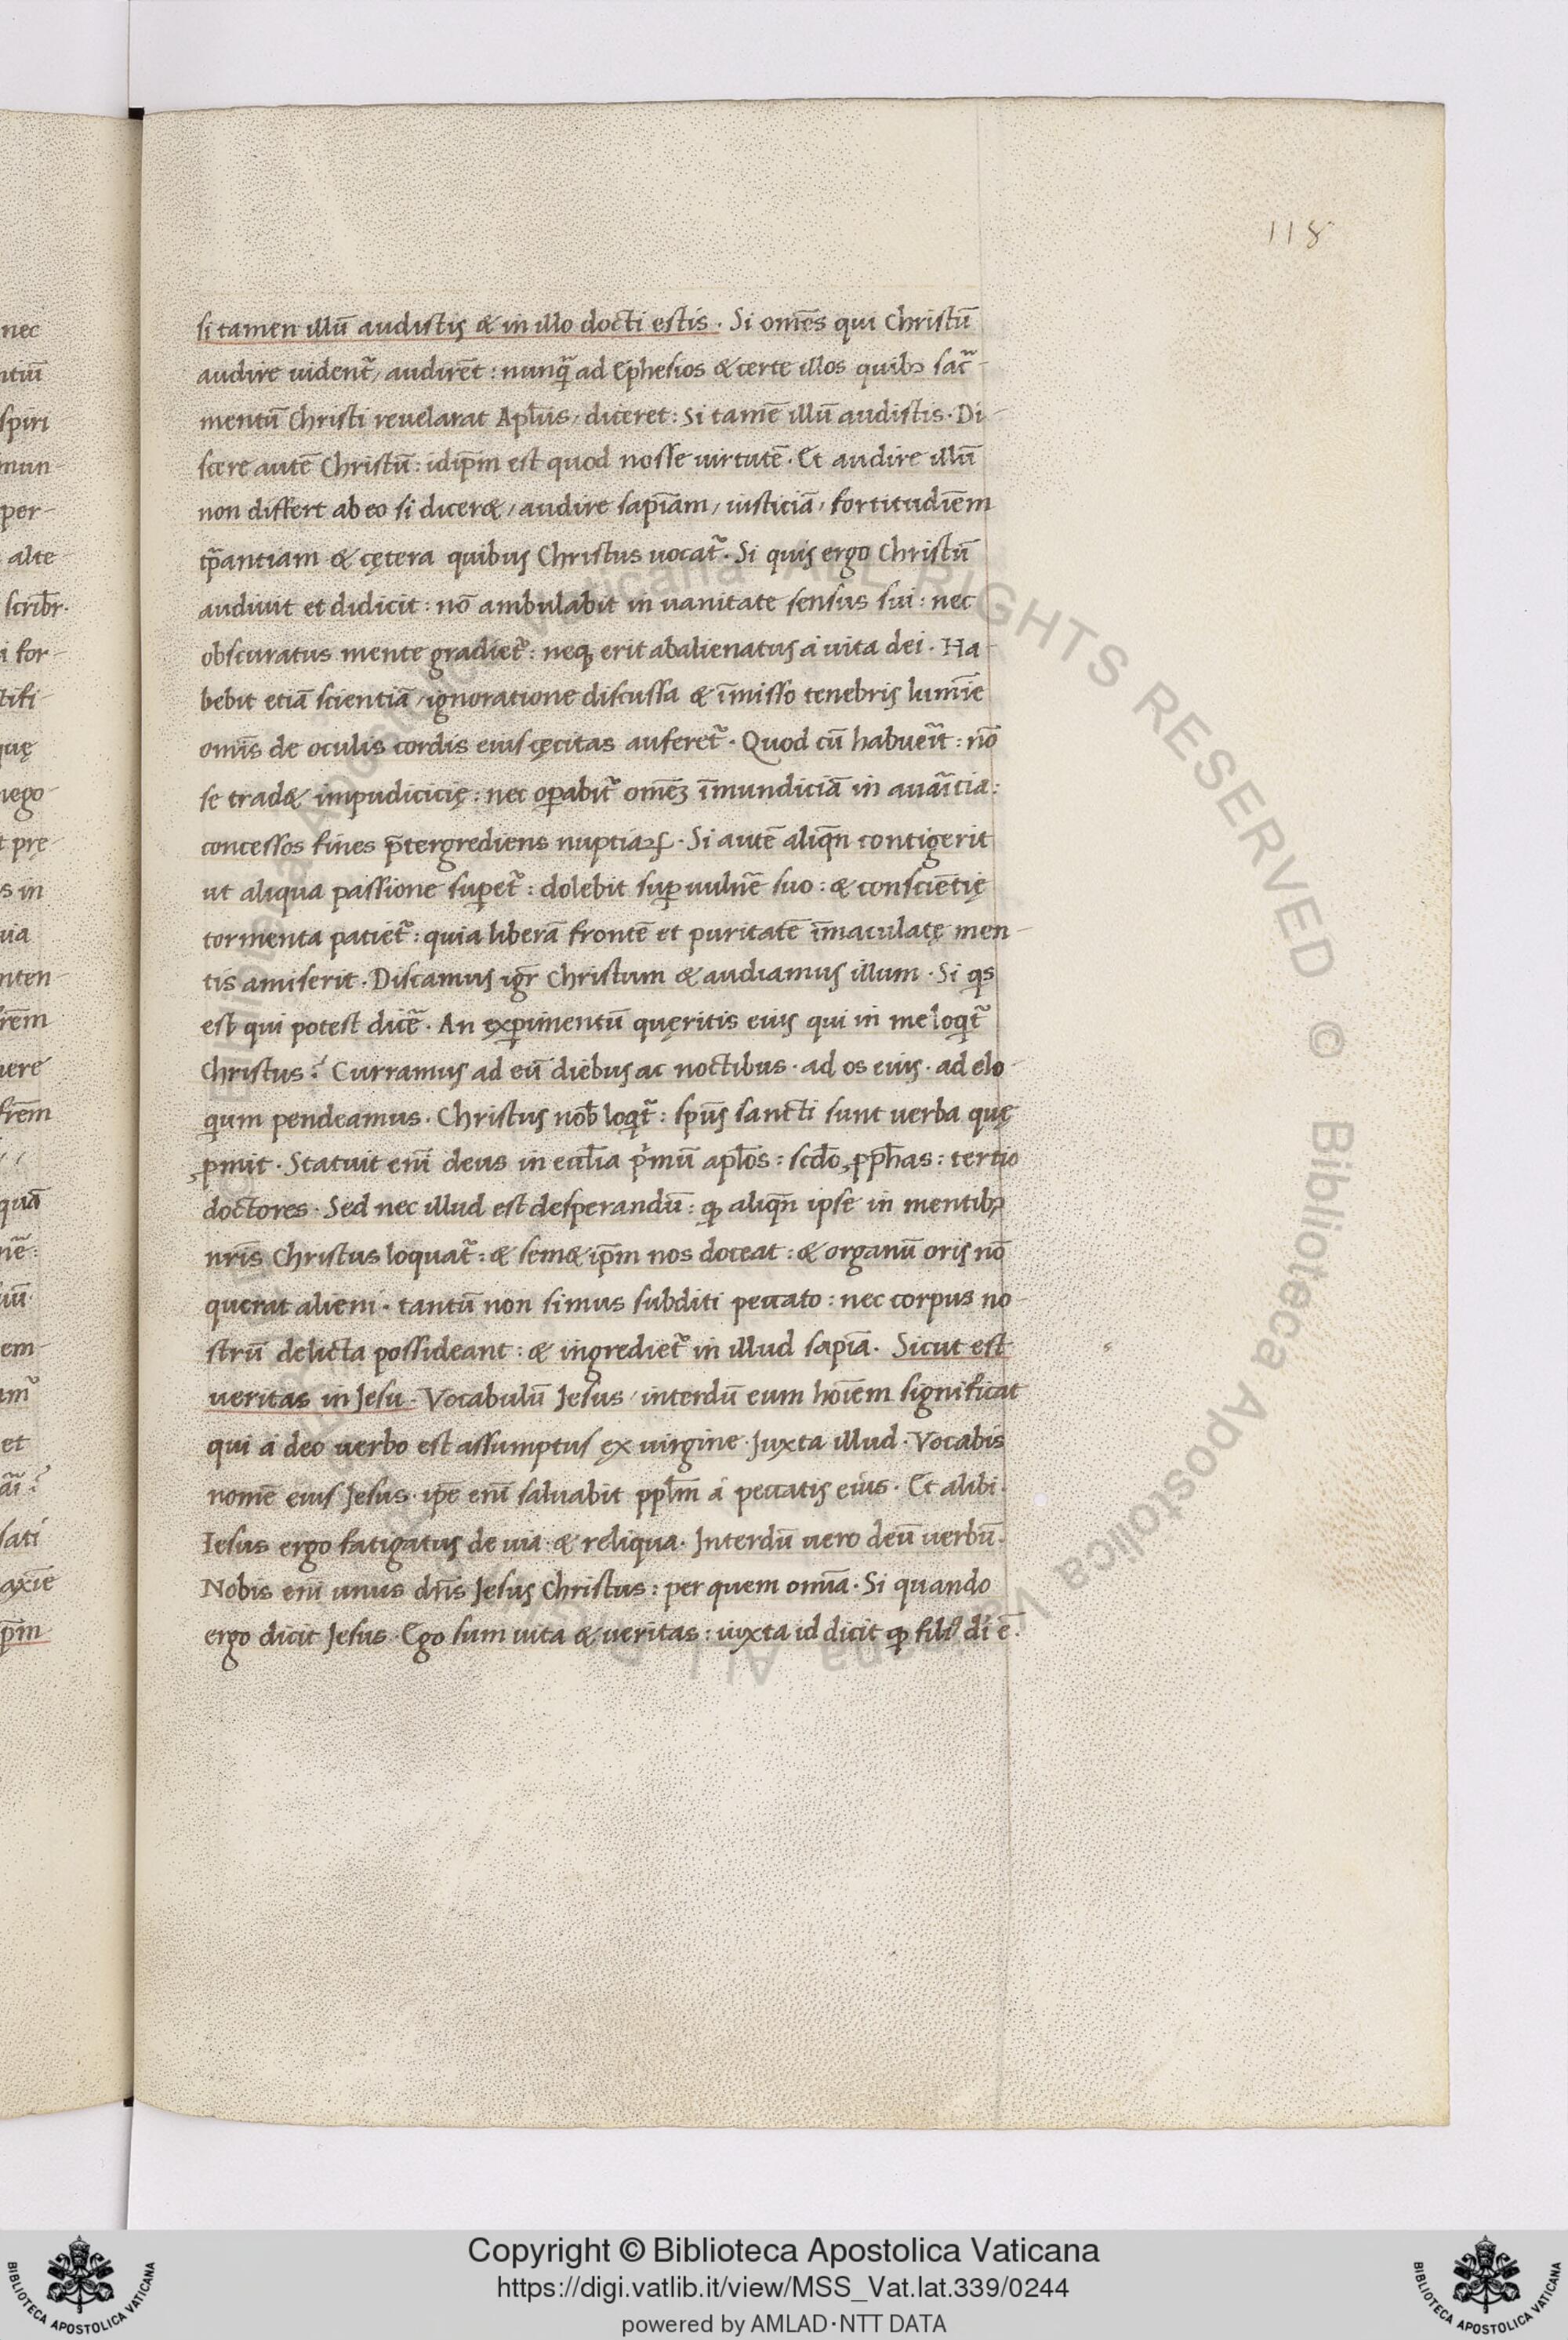 118
si tamen illū audistis & in illo docti estis. Si omēs qui Christū
audire uident᷑, audirēt: nunq̃ ad Ephesios & certe illos quibꝫ sac̃-
mentū Christi reuelarat Apl̄us, diceret: Si tamē illū audistis. Di-
scere autē Christū: idip̄m est quod nosse uirtutē. Et audire illū
non differt ab eo si dicer&, audire sapīam, iusticiā, fortitudiēm
tp̄antiam & cętera quibus Christus uocat᷑. Si quis ergo Christū
audiuit et didicit: nō ambulabit in uanitate sensus sui: nec
obscuratus mente gradiet᷑: neqꝫ erit abalienatus a uita dei. Ha-
bebit etiā scientiā, ignoratione discussa & īmisso tenebris lumīe
omīs de oculis cordis eius cęcitas auferet᷑. Quod cū habueĩt: nō
se trad& impudicicię: nec oꝑabit᷑ omēꝫ īmundiciā in auaĩcia:
concessos fines p̄tergrediens nuptiaꝝ. Si autē aliqn̄ contigerit
ut aliqua passione suꝑet᷑: dolebit suꝑ uulnē suo: & consciētię
tormenta patiet᷑: quia liberā frontē et puritatē īmaculatę men-
tis amiserit. Discamus igr̄ Christum & audiamus illum. Si qs
est qui potest dicẽ. An exꝑimentū quęritis eius qui in me loqt᷑
Christus? Curramus ad eū diebus ac noctibus. ad os eius. ad elo-
qum pendeamus. Christus nob̄ loqt᷑: sp̄us sancti sunt uerba quę
ꝓmit. Statuit enī deus in eccl̄ia pͥmū apl̄os: scd̄o ꝓph̄as: tertio
doctores. Sed nec illud est desperandū: ꝙ aliqn̄ ipse in mentibꝫ
nrīs Christus loquat᷑: & sem& ip̄m nos doceat: & organū oris nō
querat alieni. tantū non simus subditi peccato: nec corpus no-
strū delicta possideant: & ingrediet᷑ in illud sapīa. Sicut est
ueritas in Jesu. Vocabulū Jesus, interdū eum hoīem significat
qui a deo uerbo est assumptus ex uirgine. Juxta illud. Vocabis
nomē eius Jesus. ip̄e enī saluabit ppl̄m a peccatis eius. Et alibi.
Iesus ergo fatigatus de uia: & reliqua. Interdū uero deū uerbū.
Nobis enī unus dn̄s Jesus Christus: per quem omīa. Si quando
ergo dicit Jesus. Ego sum uita & ueritas: iuxta id dicit ꝙ filiꝰ di ē.
nec
spiri
mun-
per-
alte-
scrib̄r.
for-
tifi-
quę
nego-
prę-
s in
uia
nten-
uere
quā
em-
et
sati
p̄m
Biblioteca Apostolica Vaticana ALL RIGHTS RESERVED ©
BIBLIOTECA APOSTOLICA VATICANA
Copyright © Biblioteca Apostolica Vaticana
https://digi.vatlib.it/view/MSS_Vat.lat.339/0244
powered by AMLAD·NTT DATA
BIBLIOTECA APOSTOLICA VATICANA